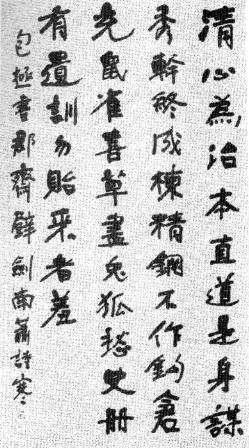 清心為治本直道是身謀
秀幹終成棟精鋼不作鈎倉
充鼠雀喜草盡兔狐愁史冊
有遺訓勿貽來者羞
包拯書郡齋壁劍南蕭詩寒